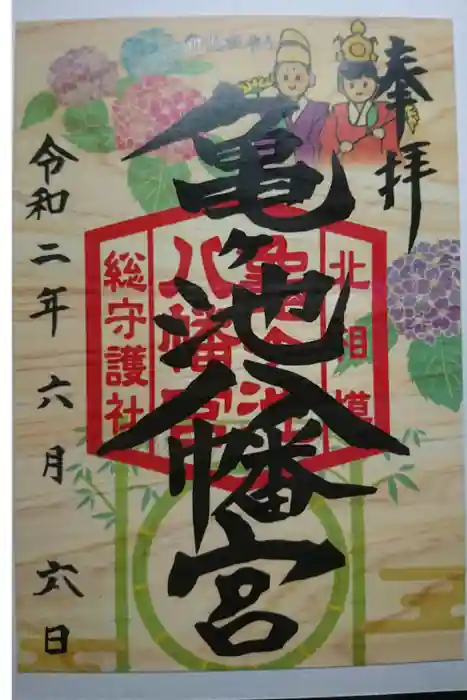 奉拝
北相模
亀ヶ池
八幡宮
総守護社
亀ヶ池八幡宮
令和二年六月六日